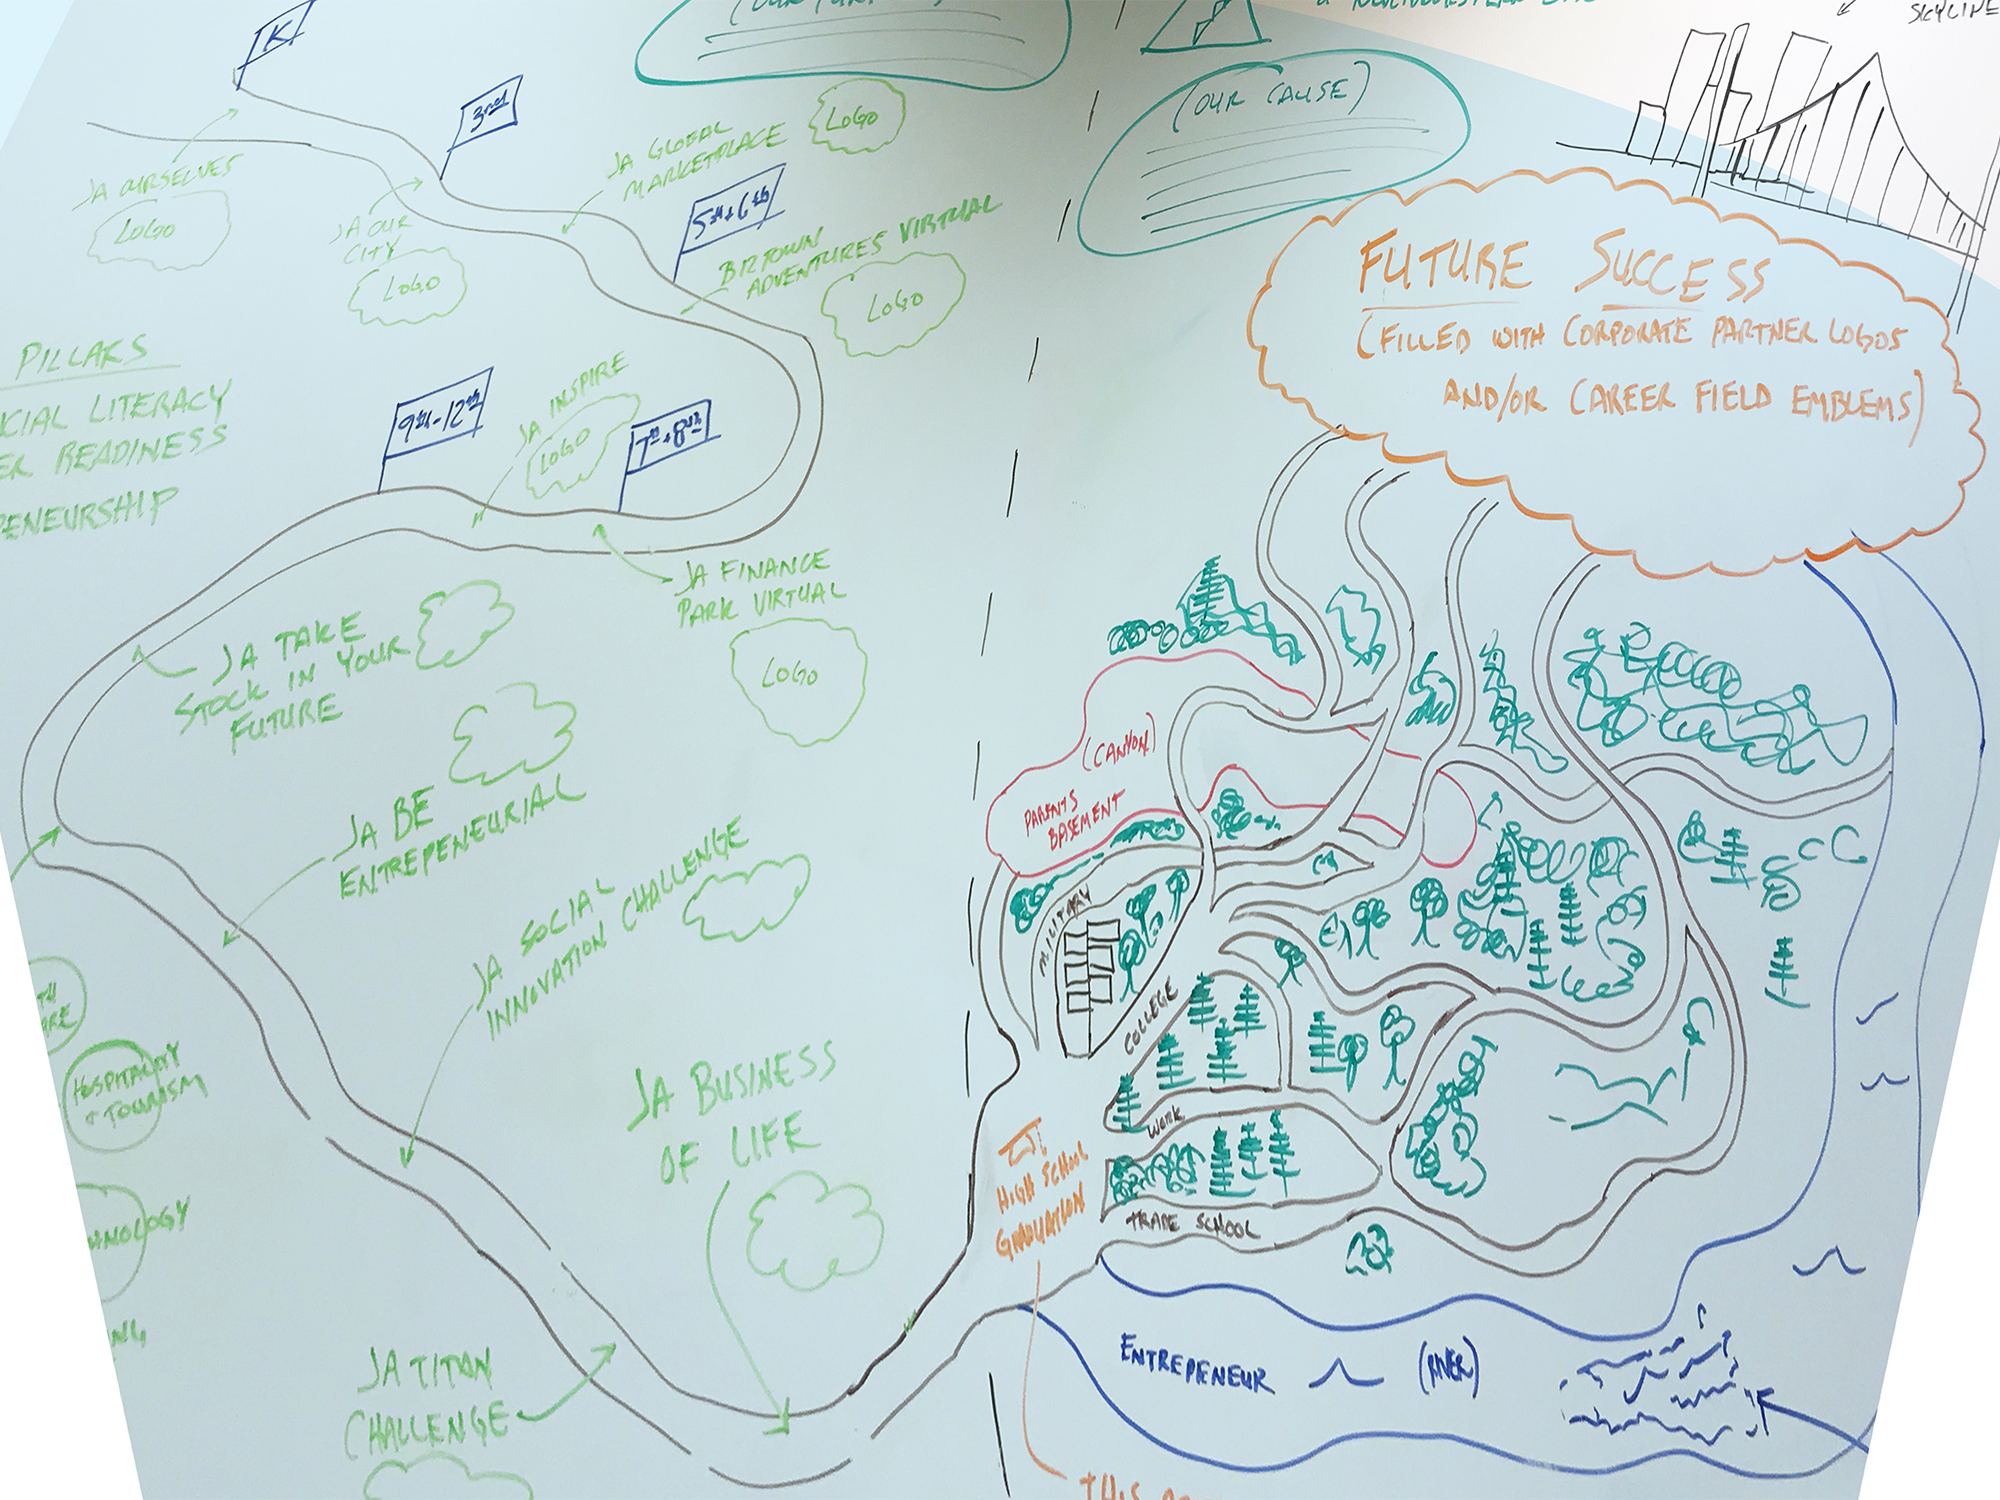 K
3rd
JA OURSELVES
LOGO
JA OUR
CITY
LOGO
JA GLOBAL
MARKETPLACE
LOGO
5th + 6th
BIZTOWN
ADVENTURES VIRTUAL
LOGO
(OUR CAUSE)
SKYLINE
FUTURE SUCCESS
(FILLED WITH CORPORATE PARTNER LOGOS
AND/OR CAREER FIELD EMBLEMS)
PILLARS
CIAL LITERACY
ER READINESS
PENEURSHIP
9th-12th
JA INSPIRE
LOGO
7th + 8th
JA FINANCE
PARK VIRTUAL
LOGO
JA TAKE
STOCK IN YOUR
FUTURE
JA BE
ENTREPENEURIAL
JA SOCIAL
INNOVATION CHALLENGE
JA BUSINESS
OF LIFE
JA TITAN
CHALLENGE
HOSPITALITY
+ TOURISM
HNOLOGY
(CANYON)
PARENTS
BASEMENT
MILITARY
COLLEGE
WORK
TRADE SCHOOL
HIGH SCHOOL
GRADUATION
ENTREPENEUR
(RIVER)
THIS